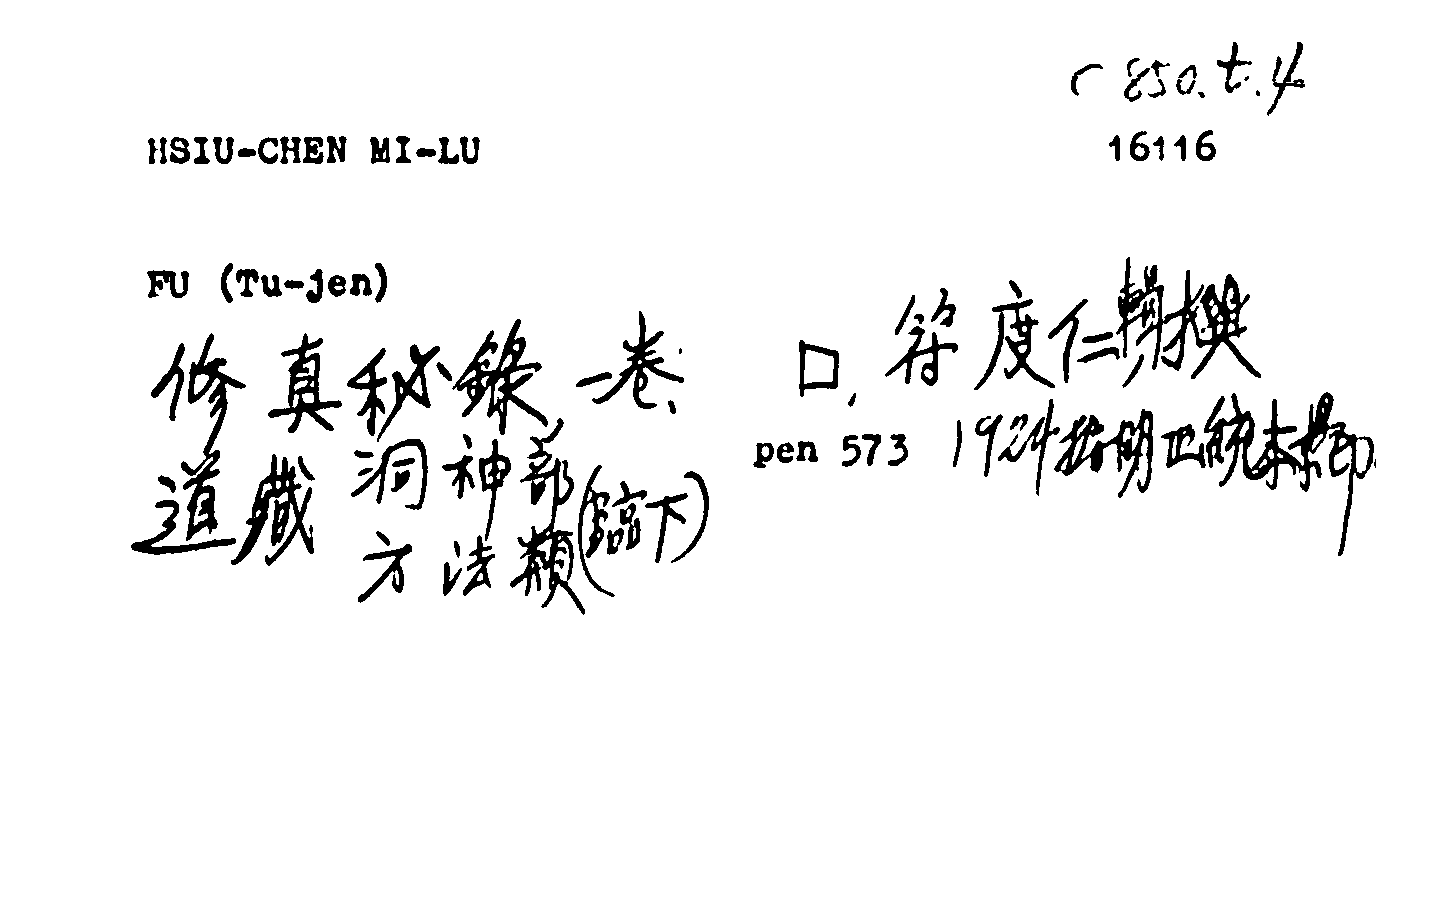 C 850.t.4
HSIU-CHEN MI-LU
16116
FU (Tu-jen)
修真秘錄,一卷. 口, 符度仁輯撰
道藏 洞神部 pen 573 1924按明正統本景印.
方法類(臨下)